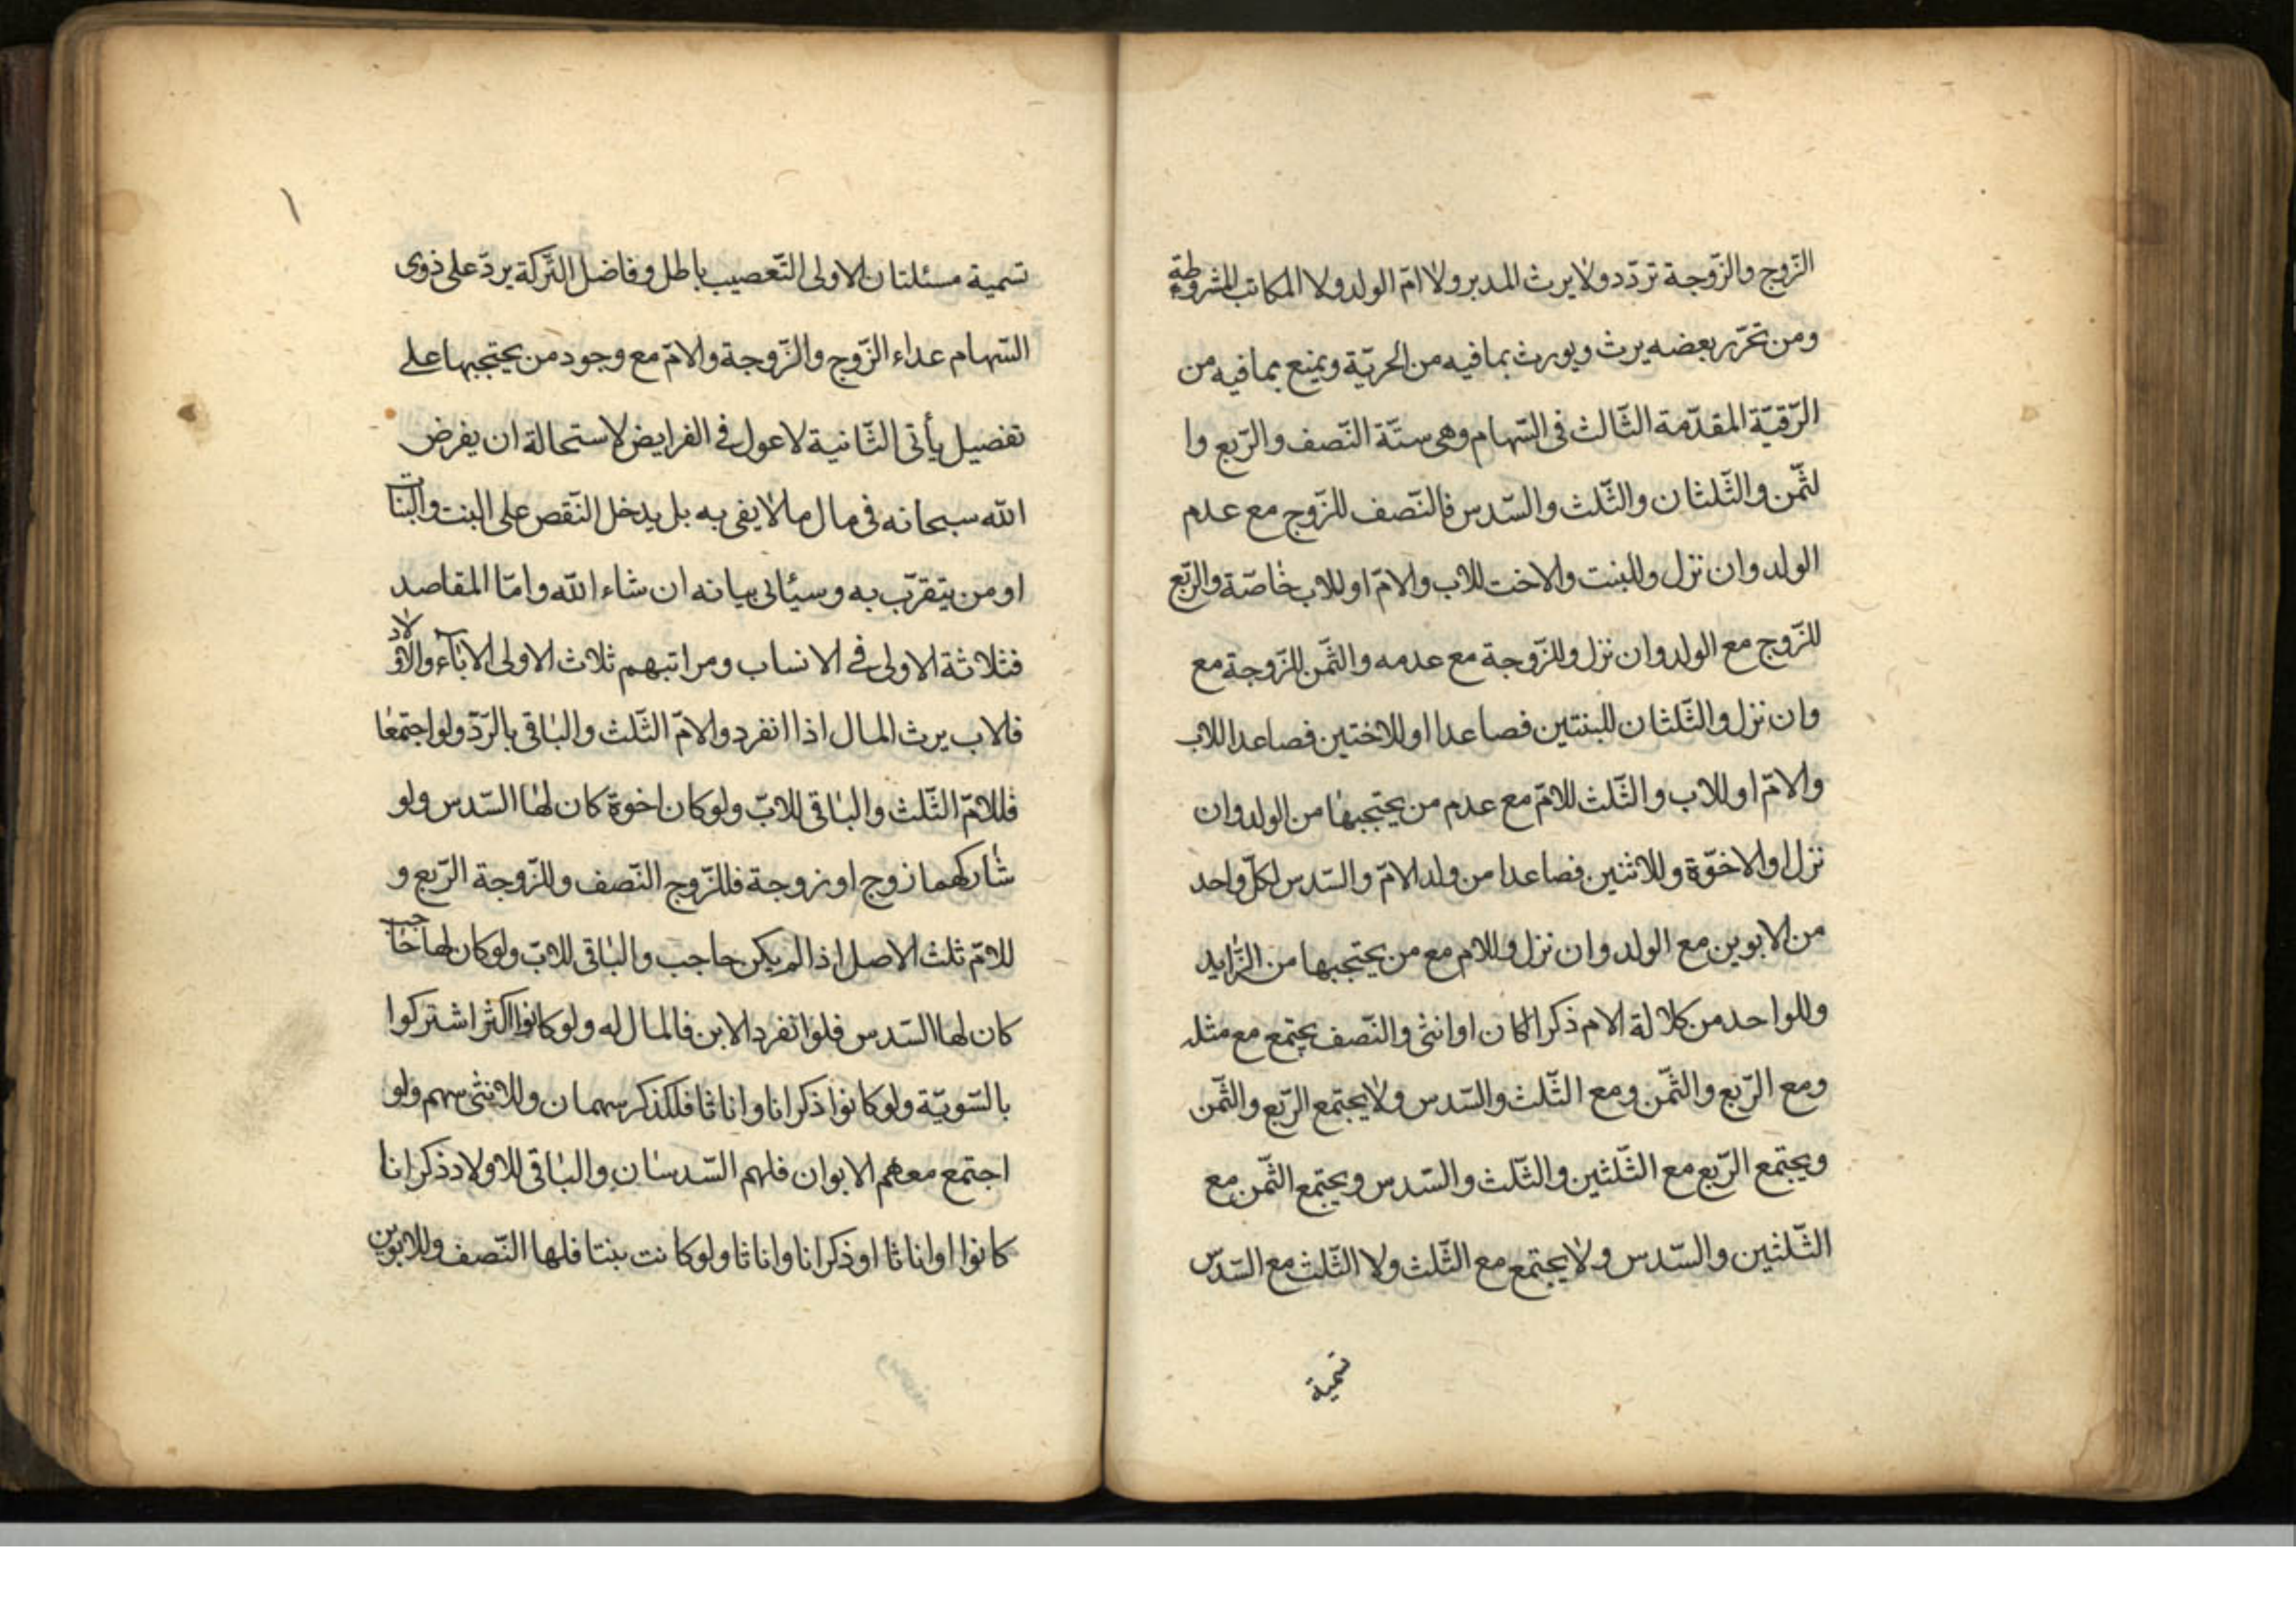 الزّوج والزّوجة تردّد ولا يرث المدبر ولا امّ الولد ولا المكاتب المشروطة
ومن تحرّر بعضه يرث ويورث بما فيه من الحريّة ويمنع بما فيه من
الرّقيّة المقدّمة الثّالث فى السّهام وهى ستّة النّصف والرّبع وا
لثّمن والثّلثان والثّلث والسّدس فالنّصف للزّوج مع عدم
الولد وان نزل وللبنت والاخت للاب والامّ او للاب خاصّة والرّبع
للزّوج مع الولد وان نزل وللزّوجة مع عدمه والثّمن للزّوجة مع
وان نزل والثّلثان للبنتين فصاعدا او للاختين فصاعدا للاب
والامّ او للاب والثّلث للامّ مع عدم من يحتجبها من الولد وان
نزل او الاخوّة وللاثنين فصاعدا من ولد الامّ والسّدس لكلّ واحد
من الابوين مع الولد وان نزل وللام مع من يحتجبها من الزّايد
وللواحد من كلالة الام ذكرا كان او انثى والنّصف يجتمع مع مثله
ومع الرّبع والثّمن ومع الثّلث والسّدس ولا يجتمع الرّبع والثّمن
ويجتمع الرّبع مع الثّلثين والثّلث والسّدس ويجتمع الثّمن مع
الثّلثين والسّدس ولا يجتمع مع الثّلث ولا الثّلث مع السّدس
تسمية
١
تسمية مسئلتان الاولى التّعصيب باطل وفاضل التّركة يردّ على ذوى
السّهام عداء الزّوج والزّوجة والامّ مع وجود من يحتجبها على
تفصيل يأتى الثّانية لا عول فى الفرايض لاستحالة ان يفرض
اللّه سبحانه فى مال ما لا يفى به بل يدخل النّقص على البنت والبنات
او من يتقرّب به وسيئاتى بيانه ان شاء اللّه وامّا المقاصد
فثلاثة الاولى فى الانساب ومراتبهم ثلاث الاولى الاباء والاولاد
فلاب يرث المال اذا انفرد والامّ الثّلث والباقى بالرّدّ ولو اجتمعا
فللامّ الثّلث والباقى للابّ ولو كان اخوة كان لها السّدس ولو
شاركهما زوج او زوجة فللزّوج النّصف وللزّوجة الرّبع و
للامّ ثلث الاصل اذا لم يكن حاجب والباقى للابّ ولو كان لها حاجب
كان لها السّدس فلو انفرد الابن فالمال له ولو كانوا اكثر اشتركوا
بالسّويّة ولو كانوا ذكرانا واناثا فللذكر سهمان وللانثى سهم ولو
اجتمع معهم الابوان فلهم السّدسان والباقى للاولاد ذكرانا
كانوا او اناثا او ذكرانا واناثا ولو كانت بنتا فلها النّصف وللابوين